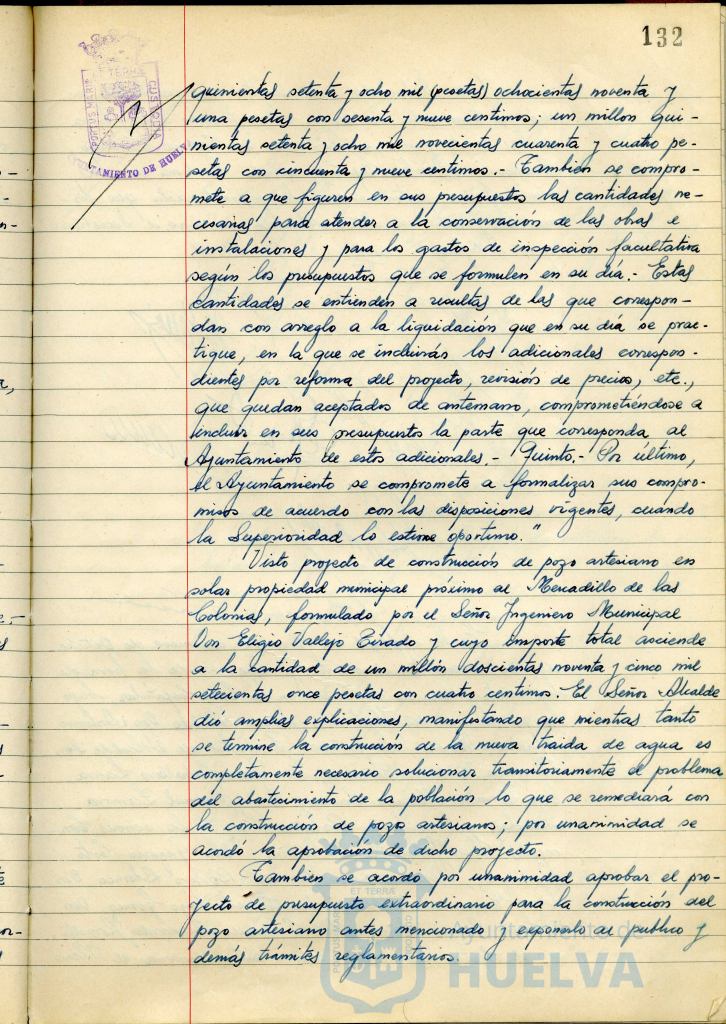 132
PORTUS MARIS ET TERRÆ CUSTODIA
AYUNTAMIENTO DE HUELVA
quinientas setenta y ocho mil (pesetas) ochocientas noventa y
una pesetas con sesenta y nueve centimos; un millon qui-
nientas setenta y ocho mil novecientas cuarenta y cuatro pe-
setas con cincuenta y nueve centimos.- Tambien se compro-
mete a que figuren en sus presupuestos las cantidades ne-
cesarias para atender a la conservación de las obras e
instalaciones y para los gastos de inspección facultativa
según los presupuestos que se formulen en su día.- Estas
cantidades se entienden a resultas de las que correspon-
dan con arreglo a la liquidación que en su día se prac-
tique, en la que se incluirán los adicionales correspon-
dientes por reforma del proyecto, revisión de precios, etc.,
que quedan aceptados de antemano, comprometiéndose a
incluir en sus presupuestos la parte que corresponda al
Ayuntamiento de estos adicionales.- Quinto.- Por último,
el Ayuntamiento se compromete a formalizar sus compro-
misos de acuerdo con las disposiciones vigentes, cuando
la Superioridad lo estime oportuno."
Visto proyecto de construcción de pozo artesiano en
solar propiedad municipal próximo al Mercadillo de las
Colonias, formulado por el Señor Ingeniero Municipal
Don Eligio Vallejo Tirado y cuyo importe total asciende
a la cantidad de un millón doscientas noventa y cinco mil
setecientas once pesetas con cuatro centimos. El Señor Alcalde
dió amplias explicaciones, manifestando que mientras tanto
se termine la construcción de la nueva traida de agua es
completamente necesario solucionar transitoriamente el problema
del abastecimiento de la población lo que se remediará con
la construcción de pozos artesianos; por unanimidad se
acordó la aprobación de dicho proyecto.
Tambien se acordó por unanimidad aprobar el pro-
yecto de presupuesto extraordinario para la construcción del
pozo artesiano antes mencionado y exponerlo al publico y
demás trámites reglamentarios
Ayuntamiento de
HUELVA